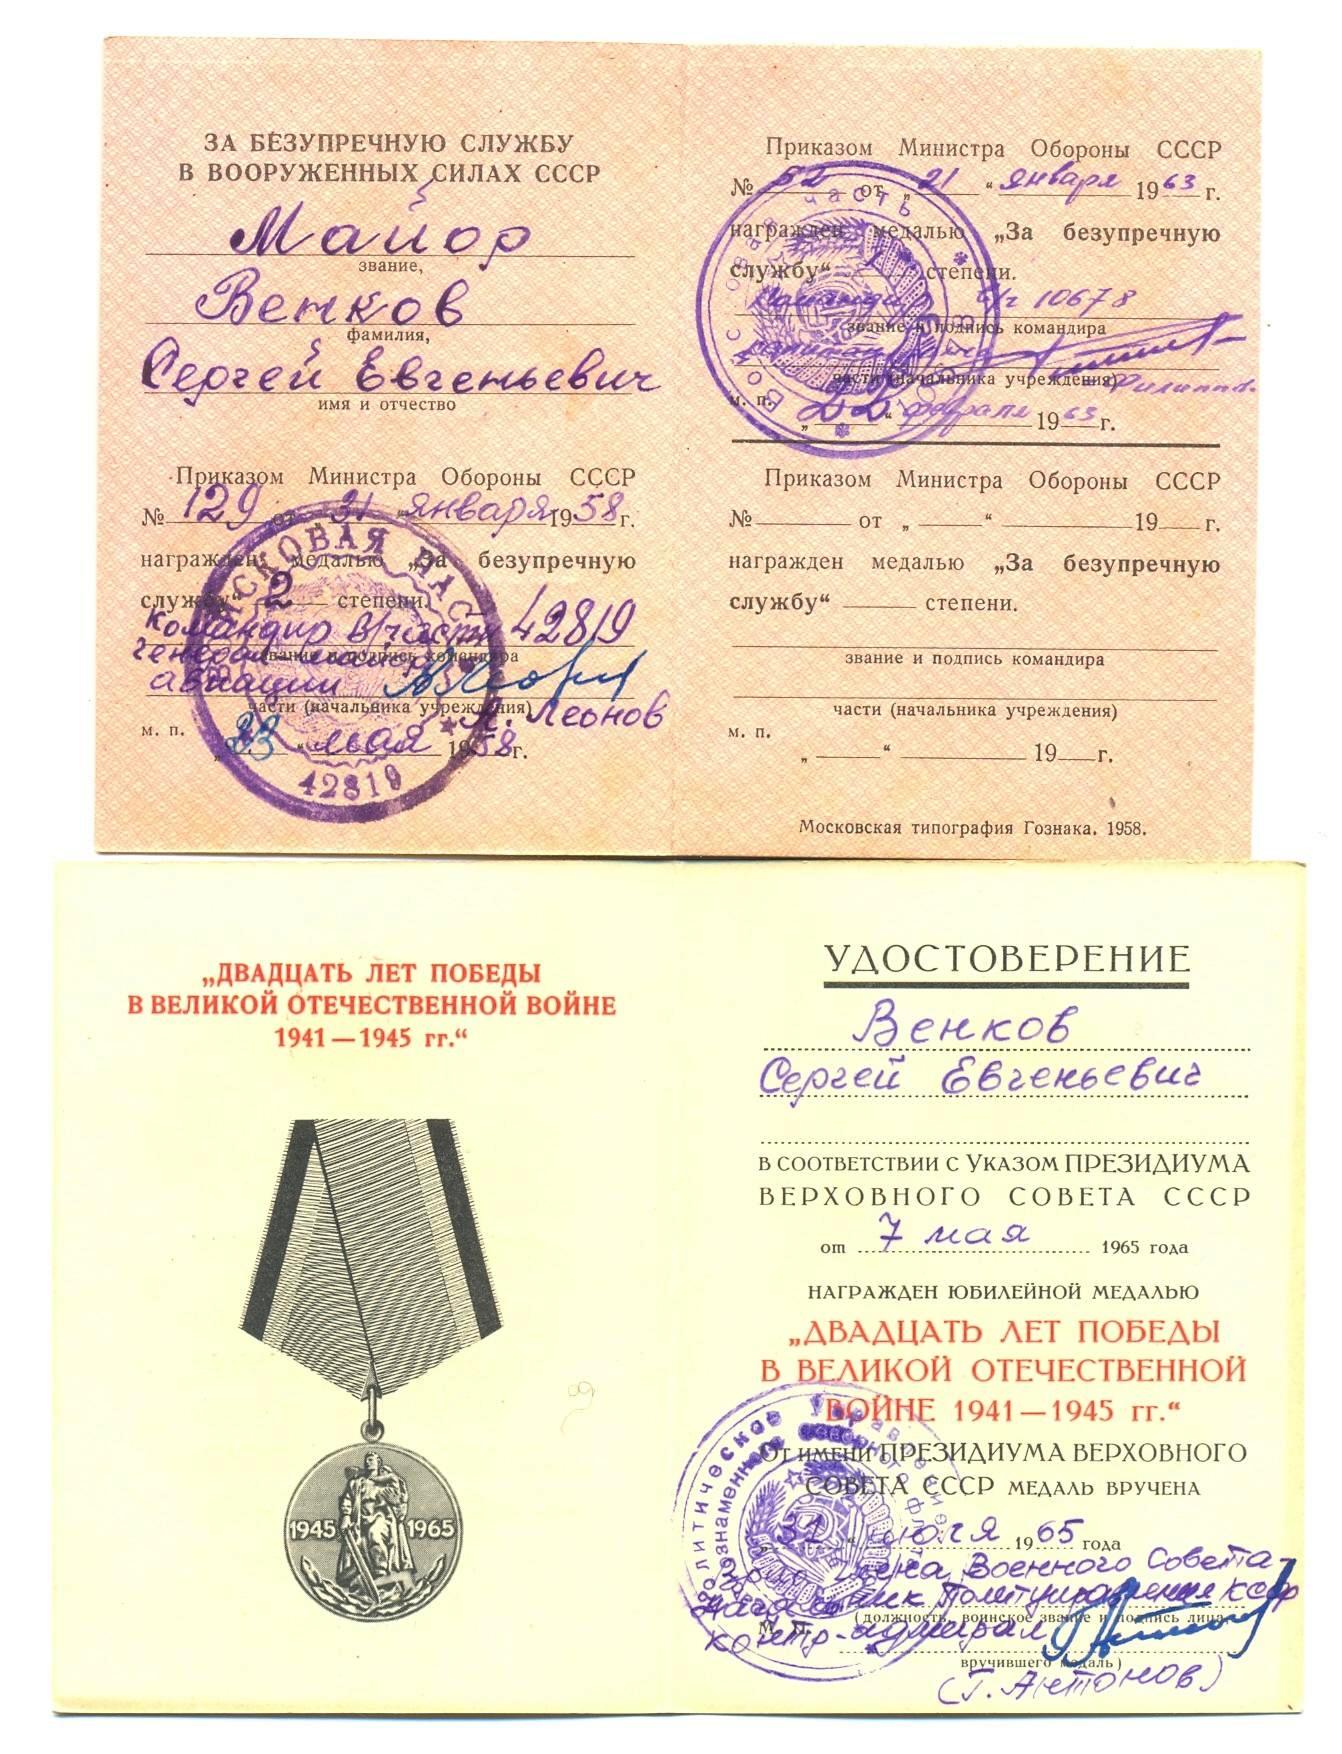 ЗА БЕЗУПРЕЧНУЮ СЛУЖБУ
В ВООРУЖЕННЫХ СИЛАХ СССР
Майор
звание,
Венков
фамилия,
Сергей Евгеньевич
имя и отчество
Приказом Министра Обороны СССР
№ 129 от „31“ января 1958 г.
награжден медалью „За безупречную
службу“ 2 степени.
Командир в/части 42819
Генерал-майор
звание и подпись командира
авиации
части (начальника учреждения)
А. Леонов
м. п.
„23“ мая 1958 г.
42819
Приказом Министра Обороны СССР
№ 52 от „21“ января 1963 г.
награжден медалью „За безупречную
службу“ 1 степени.
Командир в/ч 10678
звание и подпись командира
части (начальника учреждения)
м. п.
„22“ февраля 1963 г.
Войсковая часть
Приказом Министра Обороны СССР
№ от „ “ 19 г.
награжден медалью „За безупречную
службу“ степени.
звание и подпись командира
части (начальника учреждения)
м. п.
„ “ 19 г.
Московская типография Гознака. 1958.
„ДВАДЦАТЬ ЛЕТ ПОБЕДЫ
В ВЕЛИКОЙ ОТЕЧЕСТВЕННОЙ ВОЙНЕ
1941—1945 гг.“
1945 1965
УДОСТОВЕРЕНИЕ
Венков
Сергей Евгеньевич
В СООТВЕТСТВИИ С УКАЗОМ ПРЕЗИДИУМА
ВЕРХОВНОГО СОВЕТА СССР
от 7 мая 1965 года
НАГРАЖДЕН ЮБИЛЕЙНОЙ МЕДАЛЬЮ
„ДВАДЦАТЬ ЛЕТ ПОБЕДЫ
В ВЕЛИКОЙ ОТЕЧЕСТВЕННОЙ
ВОЙНЕ 1941—1945 гг.“
ОТ ИМЕНИ ПРЕЗИДИУМА ВЕРХОВНОГО
СОВЕТА СССР МЕДАЛЬ ВРУЧЕНА
„31“ июля 1965 года
члена Военного Совета-
Начальник Политуправления КСФ
(должность, воинское звание и подпись лица,
М. П.
контр-адмирал
вручившего медаль)
(Г. Антонов)
Политическое Управление
Краснознаменного Северного флота